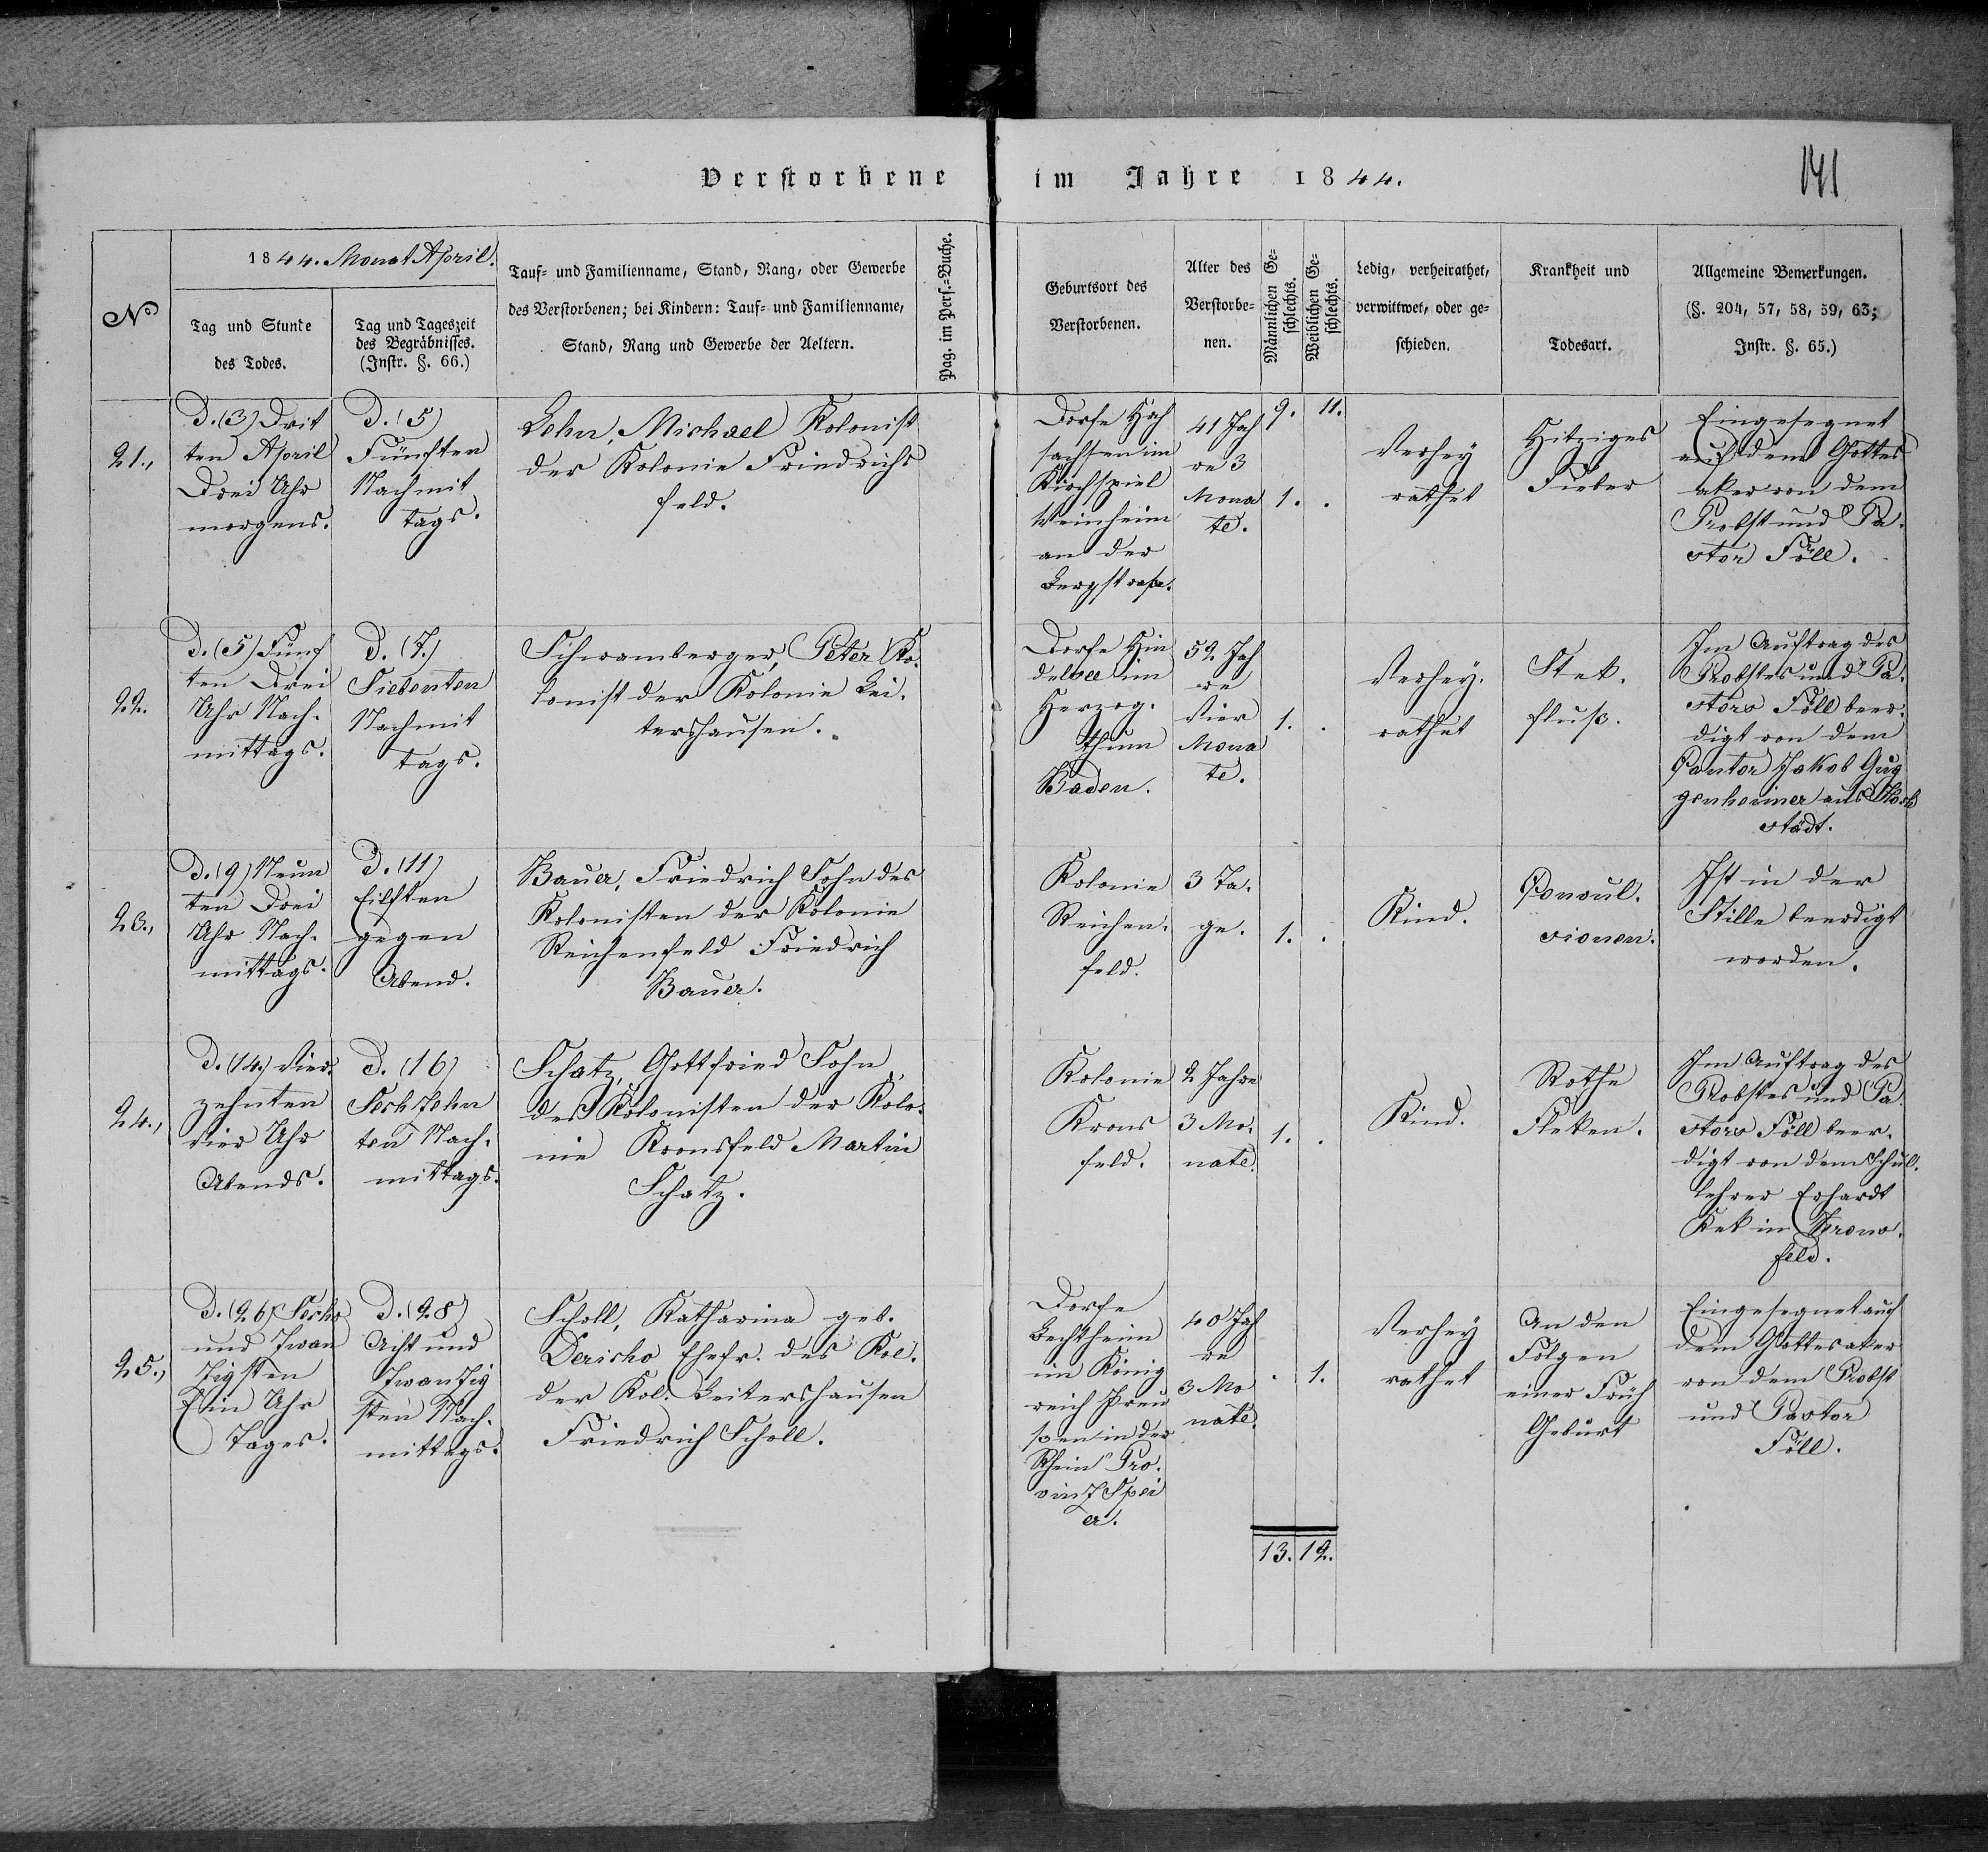 Verstorbene im Jahre 1844.
141
№
1844. Monat April.
Tag und Stunde
des Todes.
Tag und Tageszeit
des Begräbnisses.
(Instr. §. 66.)
Tauf- und Familienname, Stand, Rang, oder Gewerbe
des Verstorbenen; bei Kindern: Tauf- und Familienname,
Stand, Rang und Gewerbe der Aeltern.
Pag. im Pers.-Buche.
Geburtsort des
Verstorbenen.
Alter des
Verstorbe-
nen.
Männlichen Ge-
schlechts.
Weiblichen Ge-
schlechts.
Ledig, verheirathet,
verwittwet, oder ge-
schieden.
Krankheit und
Todesart.
Allgemeine Bemerkungen.
(§. 204, 57, 58, 59, 63;
Instr. §. 65.)
21.,
D. (3) Drit
ten April
Drei Uhr
morgens.
D. (5)
Fünften
Nachmit
tags.
Lehn, Michael Kolonist
der Kolonie Friedrichs
feld.
Dorfe Hoh
sachsen im
Kirchspiel
Weinheim
an der
Bergstraße.
41 Jah
re 3
Mona
te.
9. 11.
1. .
Verhey
rathet
Hitziges
Fieber
Eingesegnet
auf dem Gottes
aker von dem
Probst und Pa-
stor Föll.
22.
D. (5) Fünf
ten Drei
Uhr Nach-
mittags.
D. (7.)
Siebenten
Nachmit
tags.
Schwamberger, Peter Ko-
lonist der Kolonie Lei-
tershausen.
Dorfe Hin
delbee im
Herzog-
thum
Baden.
52 Jah
re
Vier
Mona
te.
1. .
Verhey-
rathet
Stek-
fluß.
Im Auftrag des
Probstes und Pa-
stors Föll beer-
digt von dem
Cantor Jakob Gug
genheimer aus Hoch
städt.
23.,
D. (9) Neun
ten Drei
Uhr Nach-
mittags.
D. (11)
Eilften
gegen
Abend.
Bauer, Friedrich Sohn des
Kolonisten der Kolonie
Reichenfeld Friedrich
Bauer.
Kolonie
Reichen-
feld.
3 Ta-
ge.
1. .
Kind.
Convul-
sionen.
Ist in der
Stille beerdigt
worden.
24.,
D. (14.) Vier-
zehnten
Vier Uhr
Abends.
D. (16)
Sechzehn
ten Nach-
mittags.
Schatz, Gottfried Sohn
des Kolonisten der Kolo-
nie Kronsfeld Martin
Schatz.
Kolonie
Krons
feld.
2 Jahre
3 Mo-
nate.
1. .
Kind.
Rothe
Fleken.
Im Auftrag des
Probstes und Pa-
stors Föll beer-
digt von dem Schul-
lehrer Erhardt
Kek in Krons-
feld.
25.,
D. (26) Sechs
und Zwan
zigsten
Ein Uhr
Tages.
D. (28)
Acht und
Zwanzig
sten Nach-
mittags.
Scholl, Katharina geb.
Derscho Ehefr. des Kol.
der Kol. Leitershausen
Friedrich Scholl.
Dorfe
Bechtheim
im König
reich Preu
ßen in der
Rhein Pro-
vinz Spei
er.
40 Jah
re
3 Mo
nate.
. 1.
Verhey
rathet
An den
Folgen
einer Früh
Geburt
Eingesegnet auf
dem Gottesaker
von dem Probst
und Pastor
Föll.
13. 12.